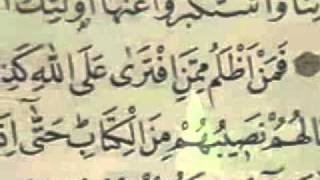 وَاسْتَكْبَرُوا عَنْهَا اُولٰٓئِكَ
فَمَنْ اَظْلَمُ مِمَّنِ افْتَرٰى عَلَى اللّٰهِ كَذِ
الُهُمْ نَصِيبُهُمْ مِنَ الْكِتَابِ حَتّٰٓى اِذَ